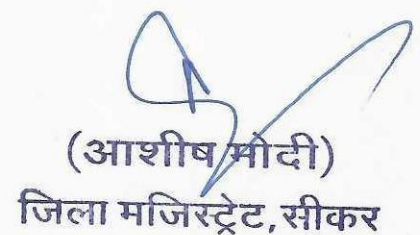 (आशीष मोदी)
जिला मजिस्ट्रेट, सीकर